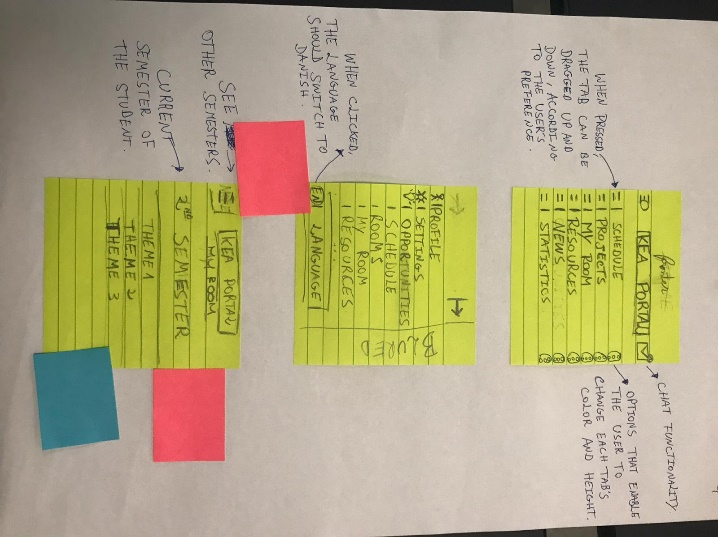 WHEN PRESSED,
THE TAB CAN BE
DRAGGED UP AND
DOWN, ACCORDING
TO THE USER'S
PREFERENCE.
KEA PORTAL
SCHEDULE
PROJECTS
MY ROOM
RESOURCES
NEWS
STATISTICS
CHAT FUNCTIONALITY
OPTIONS THAT ENABLE
THE USER TO
CHANGE EACH TAB'S
COLOR AND HEIGHT.
WHEN CLICKED,
THE LANGUAGE
SHOULD SWITCH TO
DANISH.
PROFILE
SETTINGS
OPPORTUNITIES
SCHEDULE
ROOMS
MY ROOM
RESOURCES
EN LANGUAGE
BLURED
SEE
OTHER SEMESTERS.
CURRENT
SEMESTER OF
THE STUDENT.
KEA PORTAL
MY ROOM
2ND SEMESTER
THEME 1
THEME 2
THEME 3